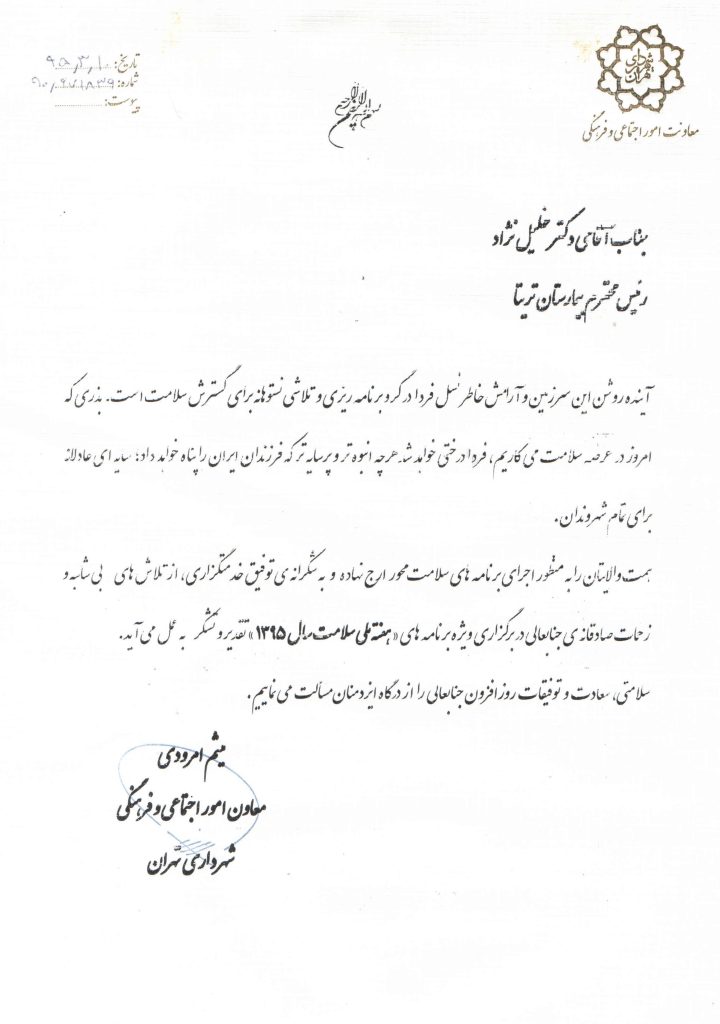 شهرداری تهران
معاونت امور اجتماعی و فرهنگی
تاریخ: ۹۵٫۳٫۱۰
شماره: ۹۰٫۹۷۱۸۳۹
پیوست:
بسم الله الرحمن الرحیم
جناب آقای دکتر خلیل نژاد
رئیس محترم بیمارستان تریتا
آینده روشن این سرزمین و آرامش خاطر نسل فردا در گرو برنامه ریزی و تلاشی نستوهانه برای گسترش سلامت است. بذری که
امروز در عرصه سلامت می کاریم، فردا درختی خواهد شد هرچه انبوه تر و پرسایه تر که فرزندان ایران را پناه خواهد داد؛ سایه ای عادلانه
برای تمام شهروندان.
همت والایتان را به منظور اجرای برنامه های سلامت محور ارج نهاده و به شکرانه ی توفیق خدمتگزاری، از تلاش های بی شائبه و
زحمات صادقانه ی جنابعالی در برگزاری ویژه برنامه های «هفته ملی سلامت سال ۱۳۹۵» تقدیر و تشکر به عمل می آید.
سلامتی، سعادت و توفیقات روزافزون جنابعالی را از درگاه ایزد منان مسألت می نماییم.
میثم امرودی
معاون امور اجتماعی و فرهنگی
شهرداری تهران